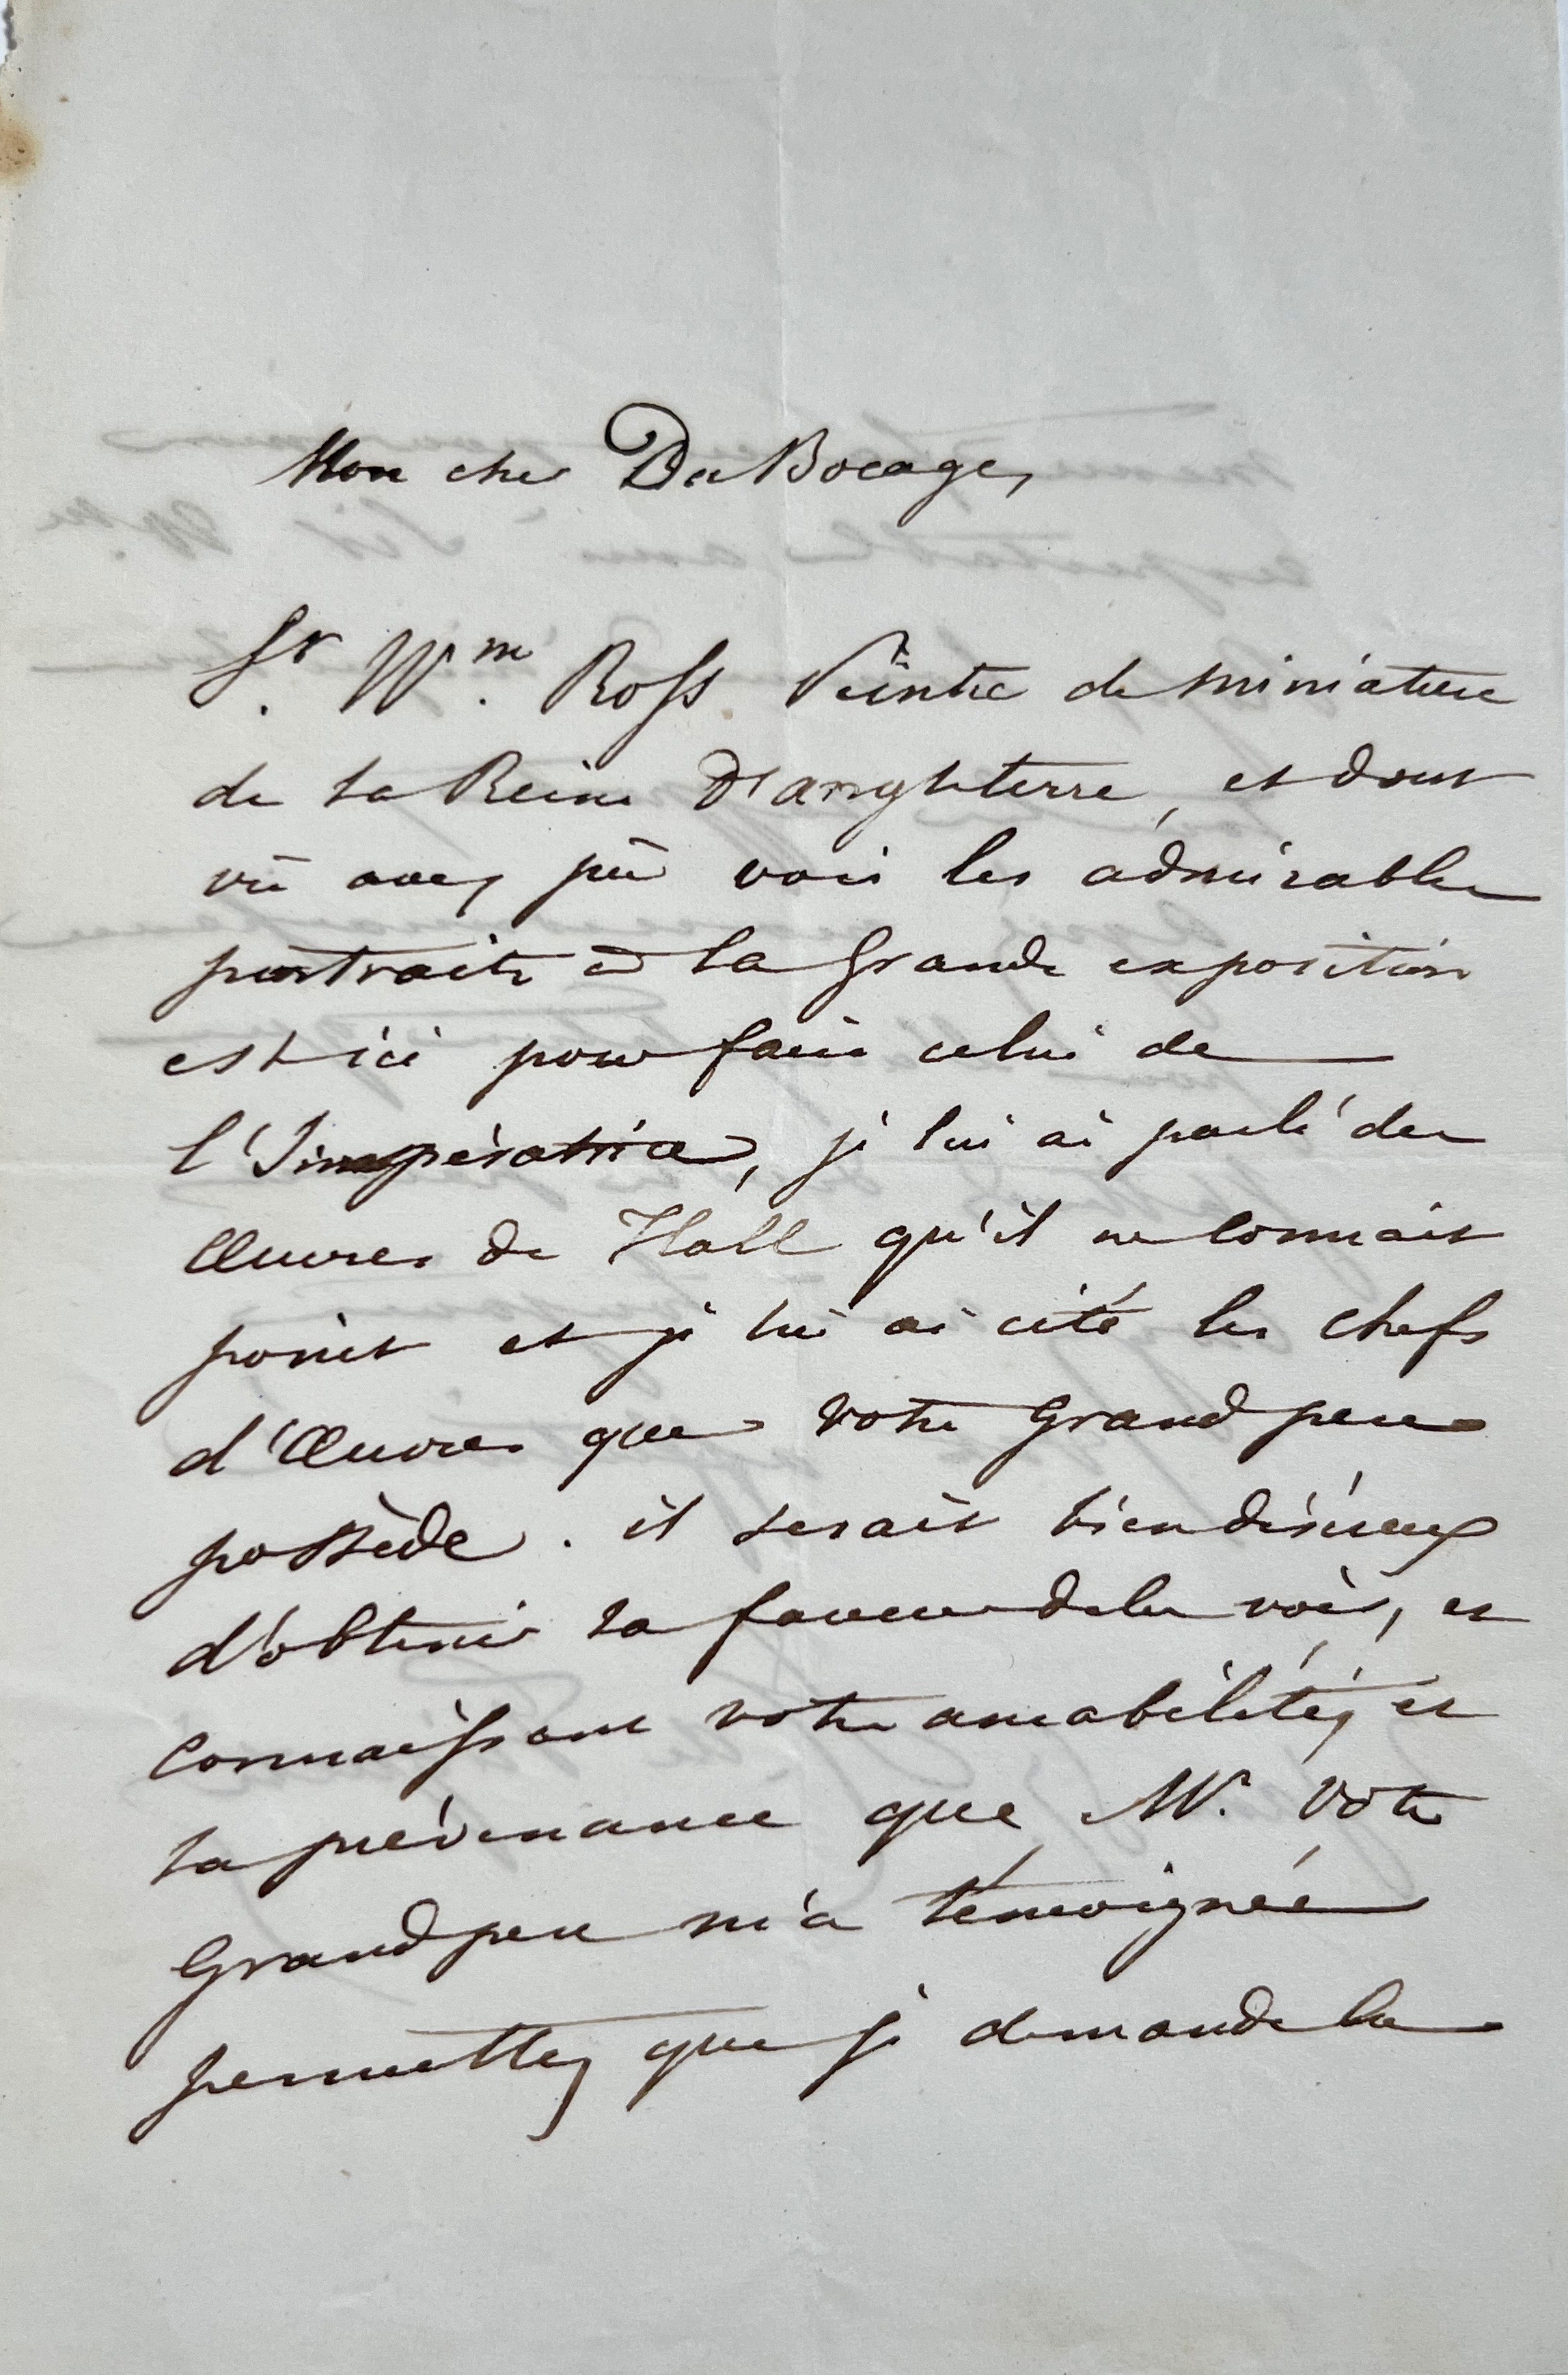 Mon cher Du Bocage,
Sr. Wm. Ross Peintre de miniature
de la Reine D'angleterre, et dont
vū avez pū voir les admirables
portraits à la Grande exposition
est ici pour faire celui de
l'Impératrice, je lui ai parlé des
Œuvres de Hall qu'il ne connait
point et je lui ai cité les chefs
d'Œuvres que votre Grand pere
possède. il serait bien désireux
d'obtenir la faveur de les voir, et
connaissant votre amabilité, et
la prévenance que Mr. votre
Grand pere m'a témoignée
permettez que je demande la